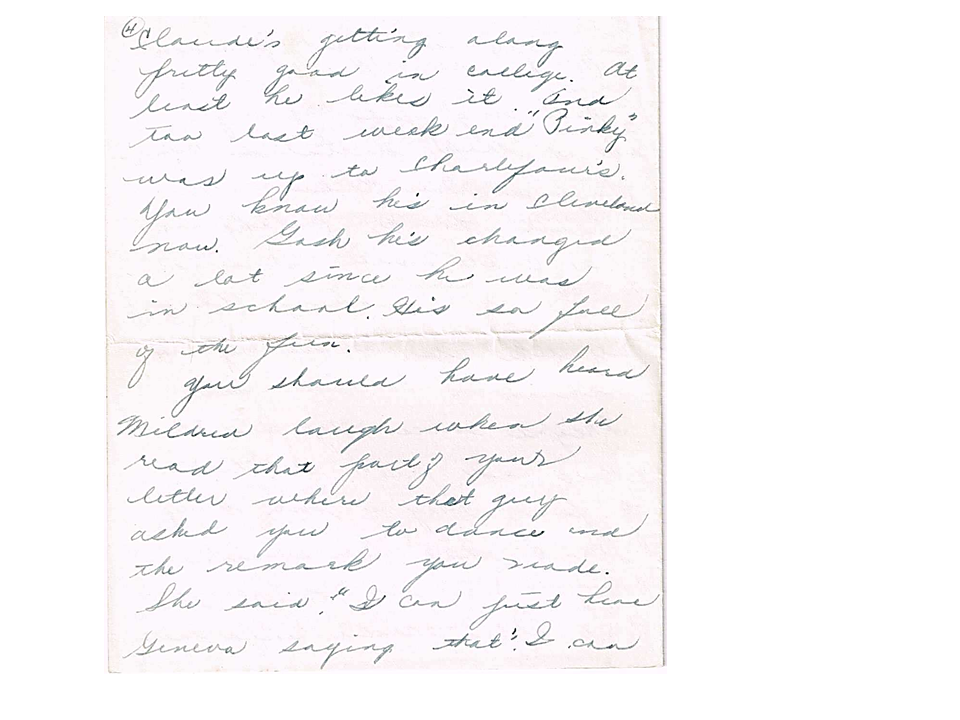 ④ Claude's getting along
pretty good in college. At
least he likes it. And
too last week end "Pinky"
was up to Charlefour's.
You know he's in Cleveland
now. Gosh he's changed
a lot since he was
in school. He's so full
of the fun.
You should have heard
Mildred laugh when she
read that part of your
letter where that guy
asked you to dance and
the remark you made.
She said, "I can just hear
Geneva saying that". I can